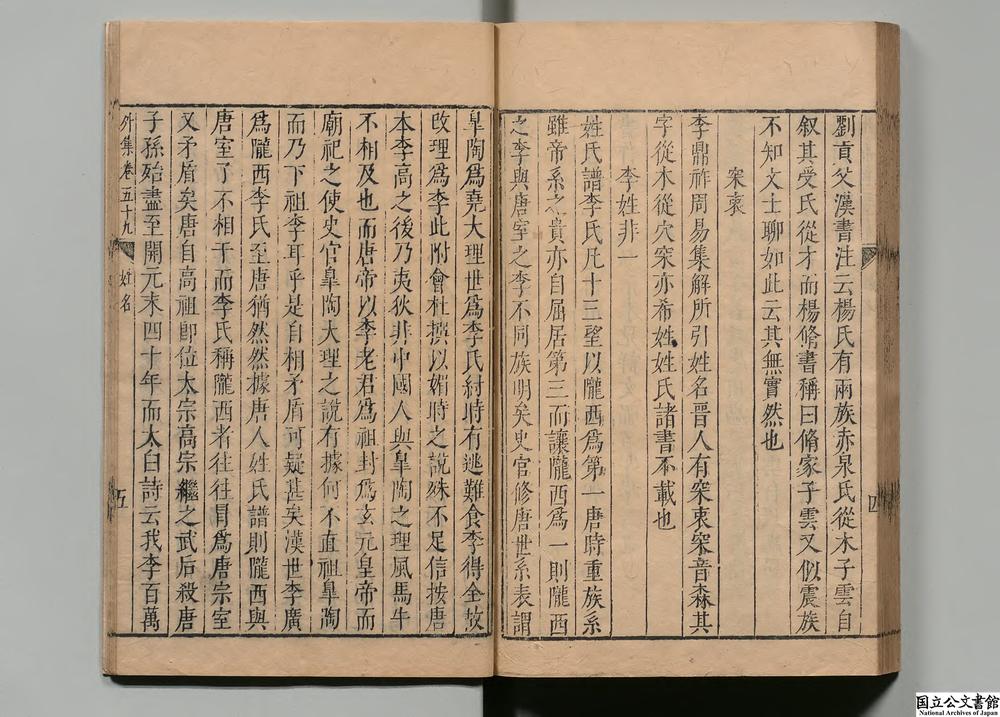 劉貢父漢書注云楊氏有兩族赤泉氏從木子雲自
叙其受氏從才而楊脩書稱曰脩家子雲又似震族
不知文士聊如此云其無實然也
冞衷
李鼎祚周易集解所引姓名晉人有冞衷冞音森其
字從木從穴冞亦希姓姓氏諸書不載也
李姓非一
姓氏譜李氏凡十三望以隴西爲第一唐時重族系
雖帝系之貴亦自屈居第三而讓隴西爲一則隴西
之李與唐室之李不同族明矣史官修唐世系表謂
四
臯陶爲堯大理世爲李氏紂時有逃難食李得全故
改理爲李此附會杜撰以媚時之說殊不足信按唐
本李高之後乃夷狄非中國人與臯陶之理風馬牛
不相及也而唐帝以李老君爲祖封爲玄元皇帝而
廟祀之使史官臯陶大理之說有據何不直祖臯陶
而乃下祖李耳乎是自相矛盾可疑甚矣漢世李廣
爲隴西李氏至唐猶然然據唐人姓氏譜則隴西與
唐室了不相干而李氏稱隴西者往往冐爲唐宗室
又矛盾矣唐自高祖卽位太宗高宗繼之武后殺唐
子孫始盡至開元末四十年而太白詩云我李百萬
外集卷五十九 姓名 五
国立公文書館
National Archives of Japan